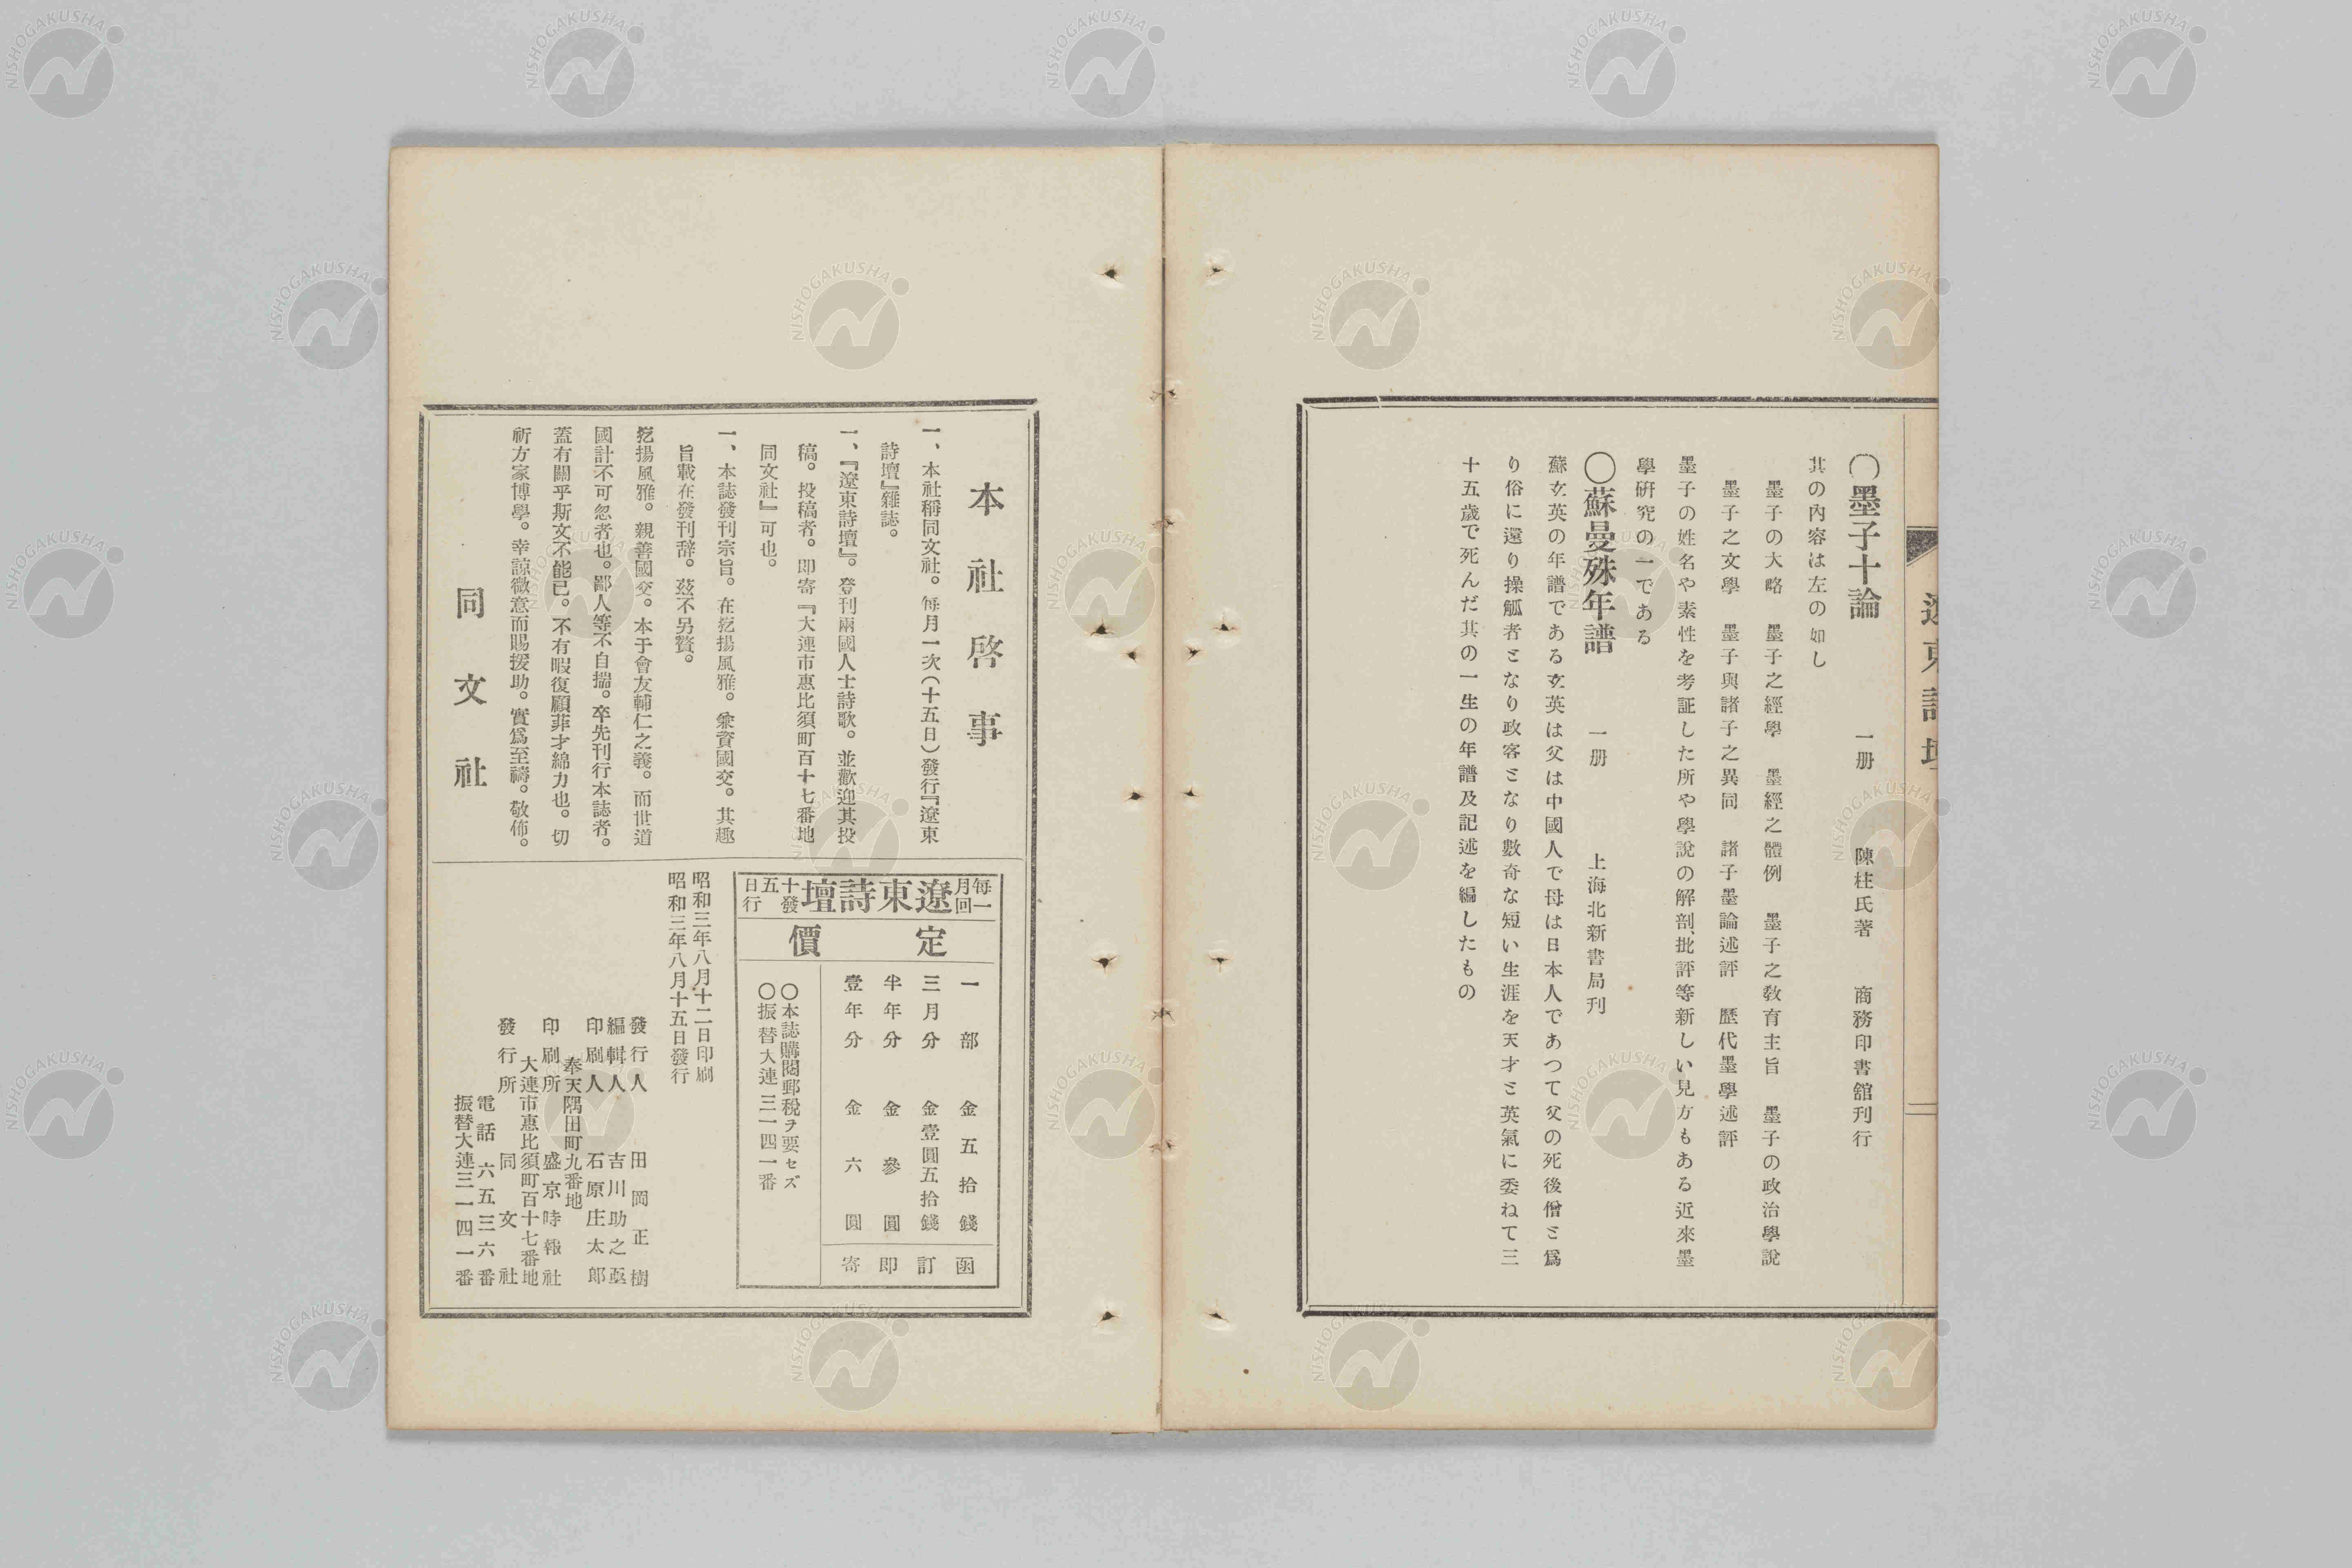 遼東詩壇
〇墨子十論　一册　陳柱氏著　商務印書舘刊行
其の內容は左の如し
墨子の大略　墨子之經學　墨經之體例　墨子之敎育主旨　墨子の政治學說
墨子之文學　墨子與諸子之異同　諸子墨論述評　歷代墨學述評
墨子の姓名や素性を考証した所や學說の解剖、批評等新しい見方もある近來墨
學硏究の一である
〇蘇曼殊年譜　一册　上海北新書局刊
蘇玄英の年譜である玄英は父は中國人で母は日本人であつて父の死後僧と爲
り俗に還り操觚者となり政客となり數奇な短い生涯を天才と英氣に委ねて三
十五歲で死んだ其の一生の年譜及記述を編したもの
本社啓事
一、本社稱同文社。每月一次（十五日）發行『遼東
詩壇』雜誌。
一、『遼東詩壇』。登刊兩國人士詩歌。並歡迎其投
稿。投稿者。卽寄『大連市惠比須町百十七番地
同文社』可也。
一、本誌發刊宗旨。在扢揚風雅。兼資國交。其趣
旨載在發刊辞。茲不另贅。
扢揚風雅。親善國交。本于會友輔仁之義。而世道
國計不可忽者也。鄙人等不自揣。卒先刊行本誌者。
蓋有關乎斯文不能已。不有暇復顧菲才綿力也。切
祈方家博學。幸諒微意而賜援助。實爲至禱。敬佈。
同文社
每月一回
遼東詩壇
十五日發行
定價
一部　金五拾錢
三月分　金壹圓五拾錢
半年分　金參圓
壹年分　金六圓
函訂卽寄
〇本誌購閱郵稅ヲ要セズ
〇振替大連三一四一番
昭和三年八月十二日印刷
昭和三年八月十五日發行
發行人　田岡正樹
編輯人　吉川助之亟
印刷人　石原庄太郎
奉天隅田町九番地
印刷所　盛京時報社
大連市惠比須町百十七番地
發行所　同文社
電話六五三六番
振替大連三一四一番
NISHOGAKUSHA